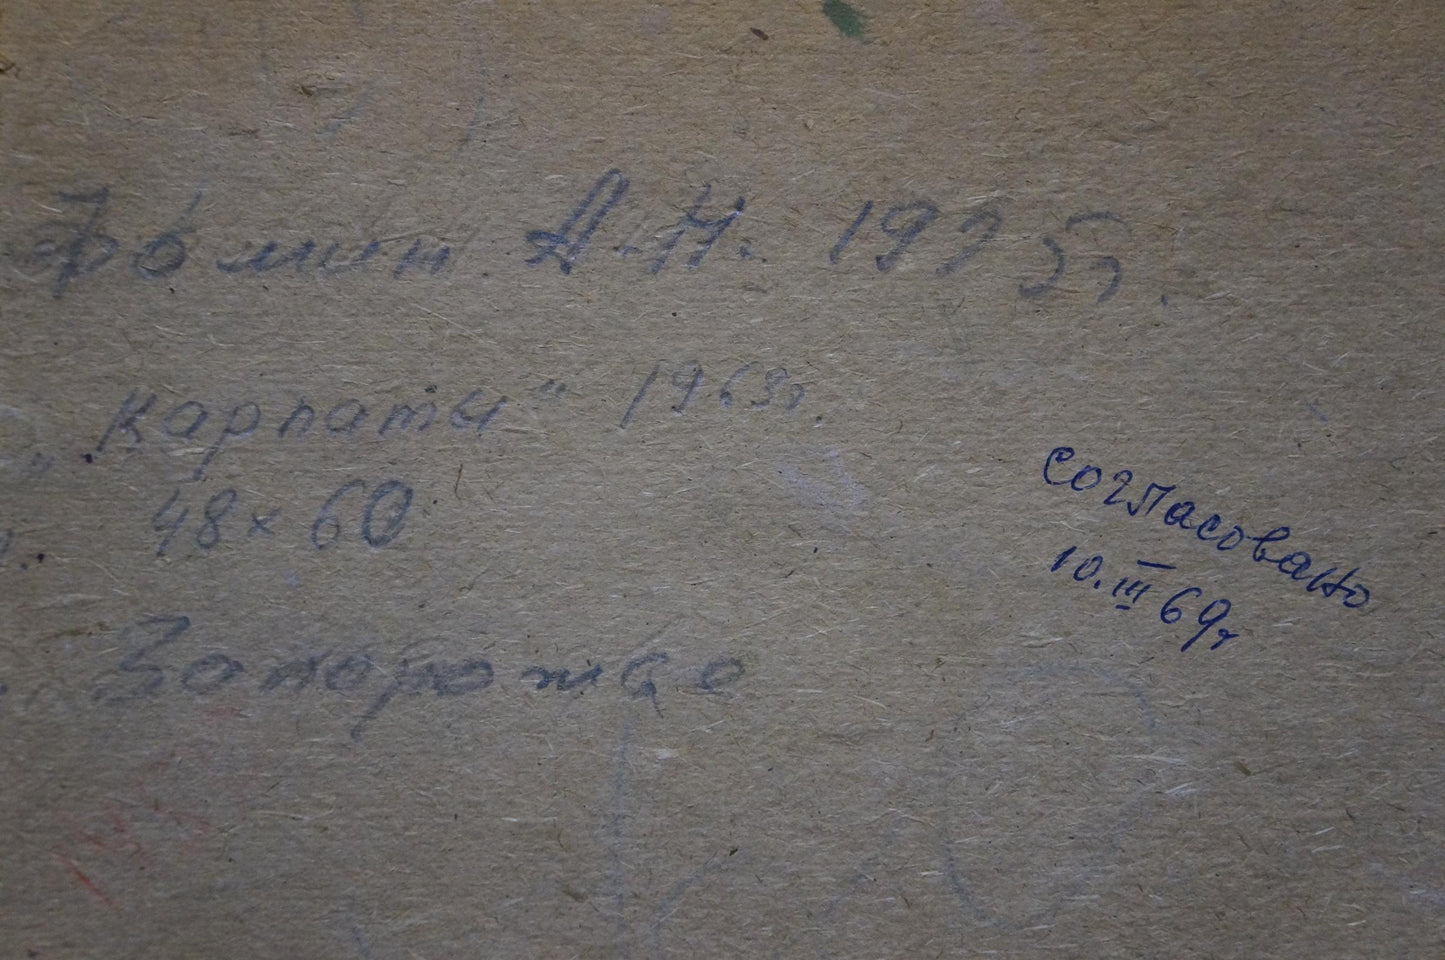 Фомин А.Н. 1925г.
„Карпаты" 1969г.
48×60
согласовано
10.III 69г
Запорожье